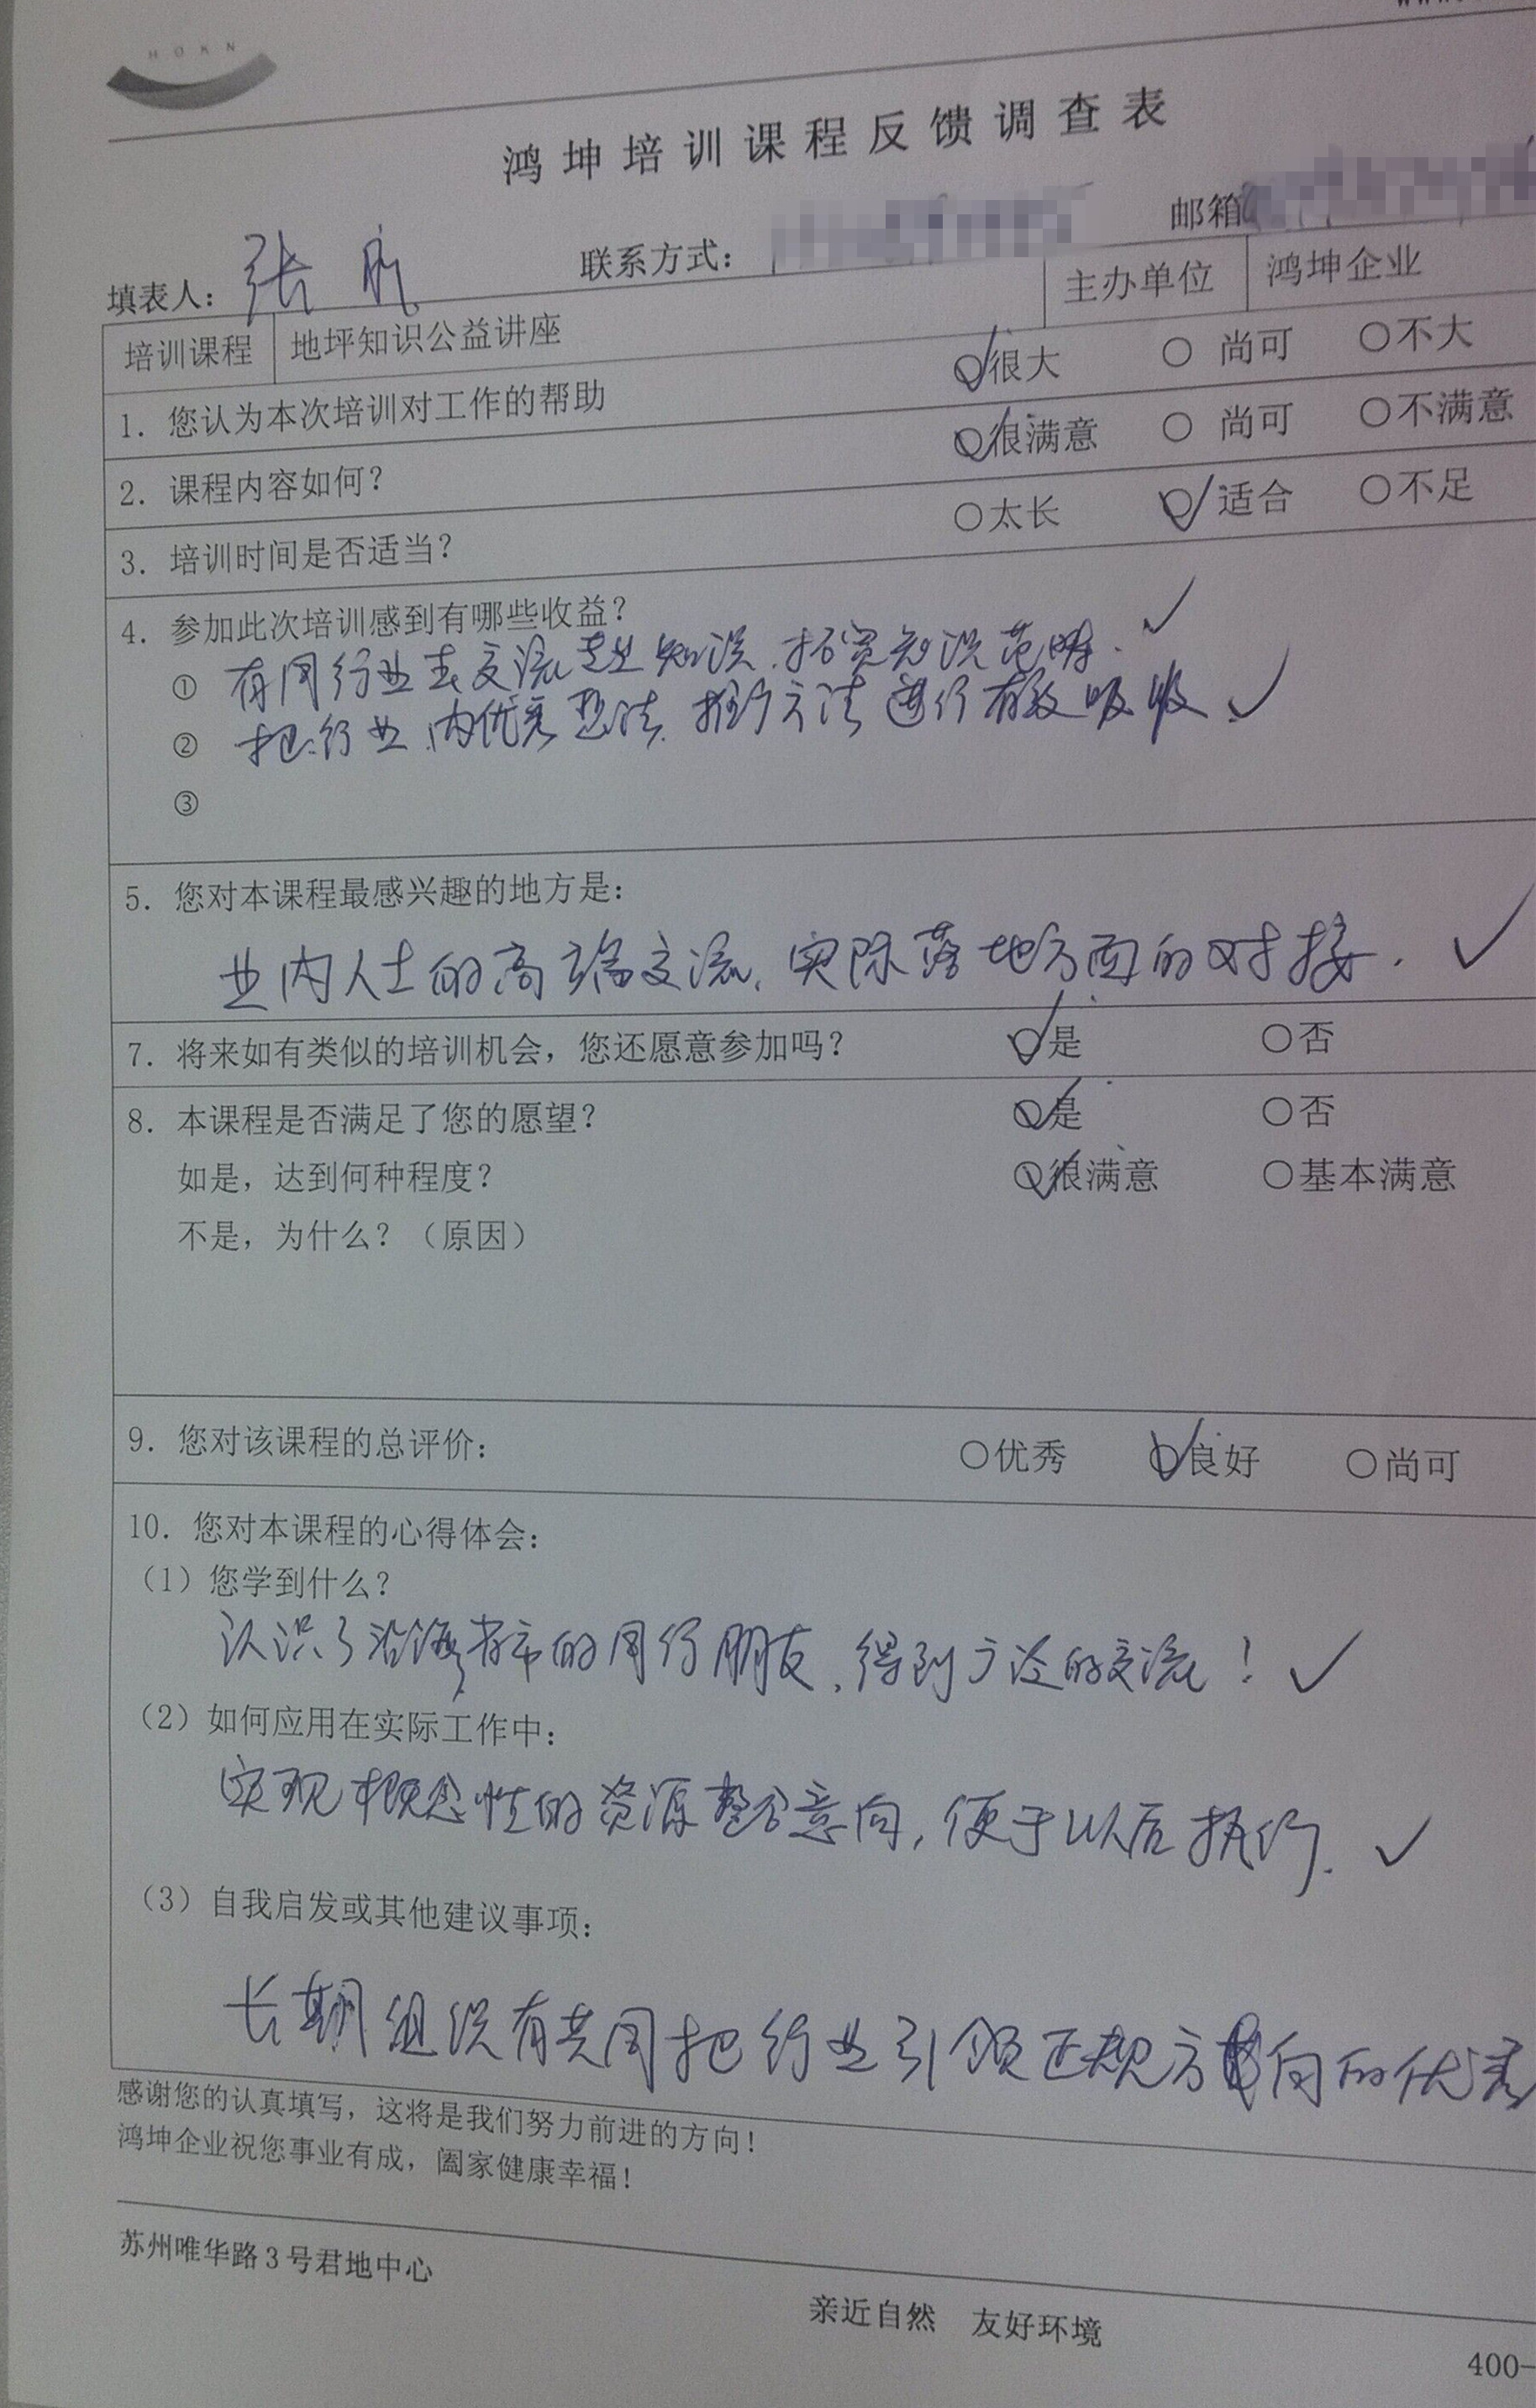 HOKN
鸿坤培训课程反馈调查表
填表人: 张 联系方式: 邮箱
培训课程 地坪知识公益讲座 主办单位 鸿坤企业
1. 您认为本次培训对工作的帮助 ○很大 ○ 尚可 ○不大
2. 课程内容如何? ○很满意 ○ 尚可 ○不满意
3. 培训时间是否适当? ○太长 ○ 适合 ○不足
4. 参加此次培训感到有哪些收益?
① 有同行业去交流专业知识、拓宽知识范畴.
② 把行业内优秀想法、推广方法进行有效吸收.
③
5. 您对本课程最感兴趣的地方是:
业内人士的高端交流、实际落地方面的对接.
7. 将来如有类似的培训机会, 您还愿意参加吗? ○是 ○否
8. 本课程是否满足了您的愿望? ○是 ○否
如是, 达到何种程度? ○很满意 ○基本满意
不是, 为什么? (原因)
9. 您对该课程的总评价: ○优秀 ○良好 ○尚可
10. 您对本课程的心得体会:
(1) 您学到什么?
认识了沿海城市的同行朋友、得到广泛的交流!
(2) 如何应用在实际工作中:
实现概念性的资源整合意向, 便于以后执行.
(3) 自我启发或其他建议事项:
长期组织有共同把行业引领正规方向的优秀
感谢您的认真填写, 这将是我们努力前进的方向!
鸿坤企业祝您事业有成, 阖家健康幸福!
苏州唯华路3号君地中心
亲近自然 友好环境
400-